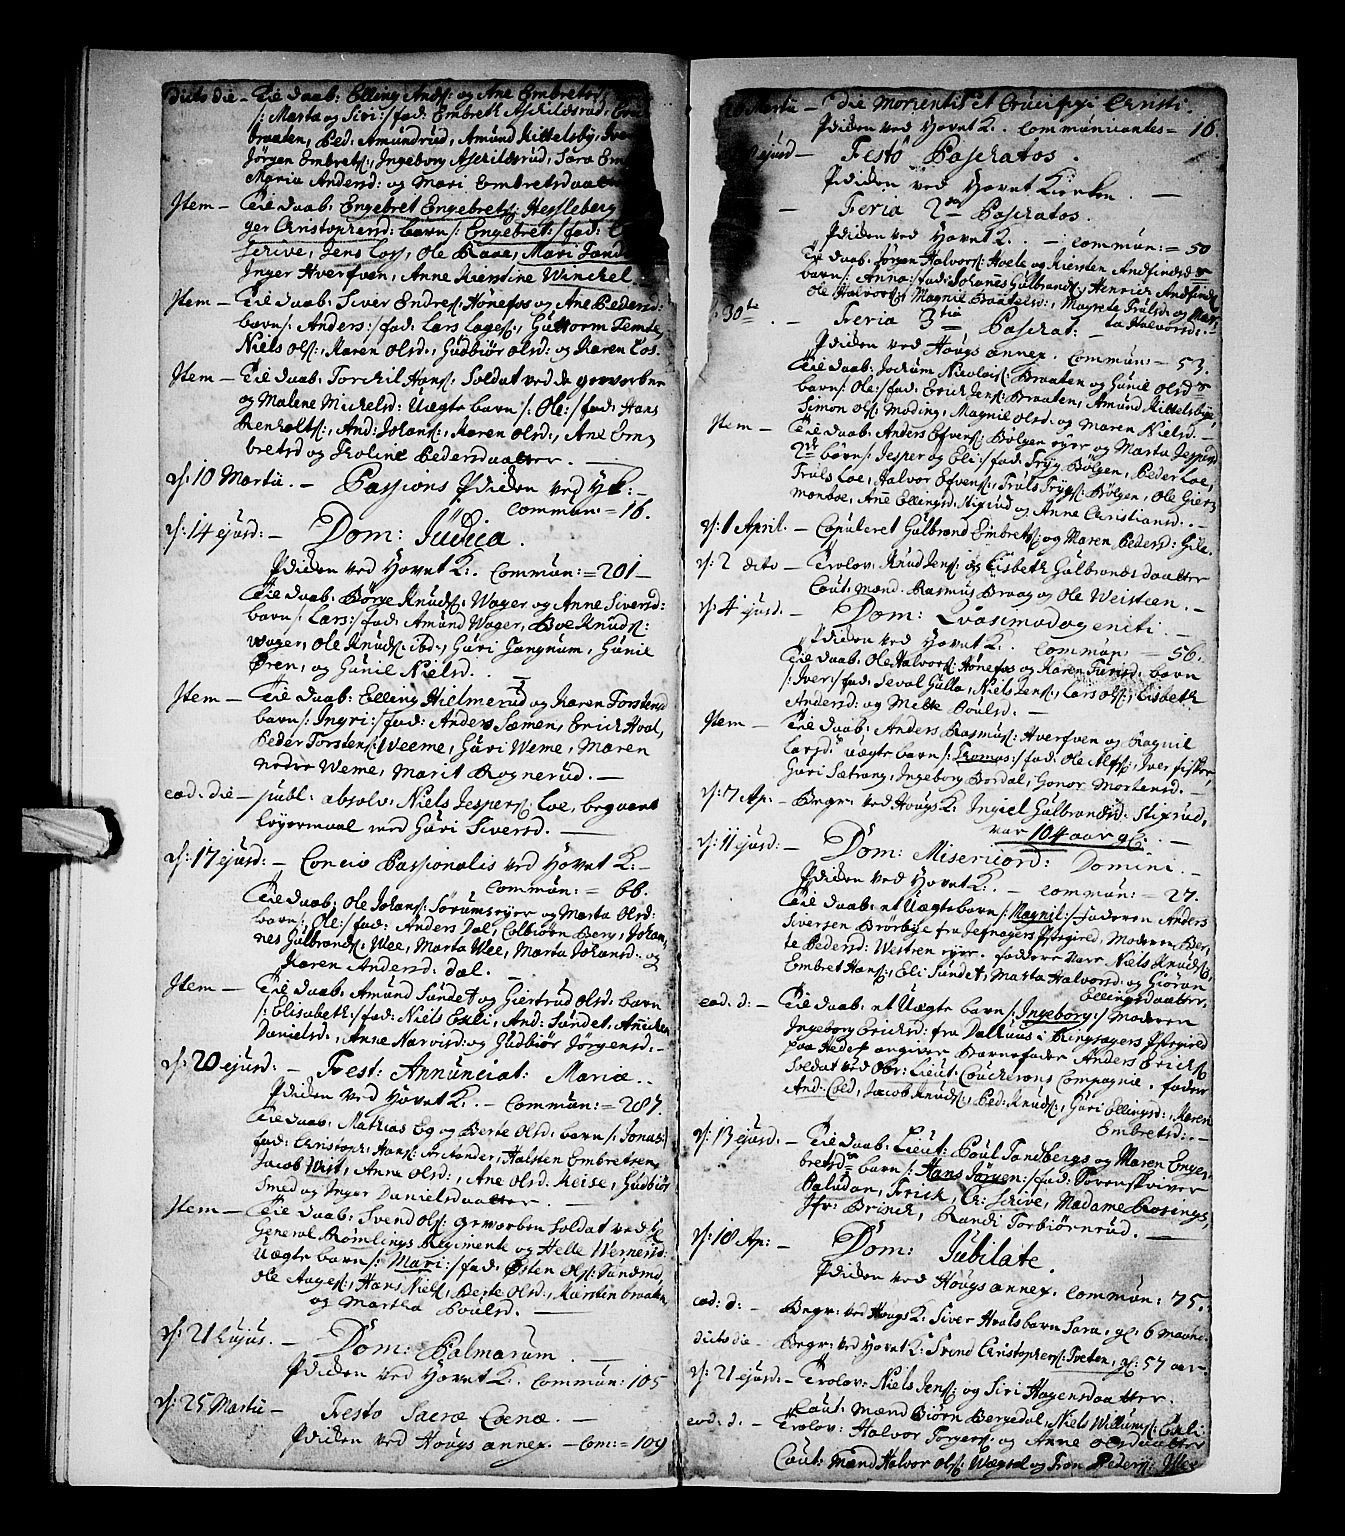 dicto die – Til daab: Elling Ands: og Ane Embretsd:
/: Marta og Siri:/ fad: Embreth Askildsrud,
braaten, Ped: Amundrud, Amund Kittelsby,
Jörgen Embrets:, Ingeborg Askildsrud, Sara
Maria Andersd: og Mari Embretsdaatter
Item – Til daab: Engebret Engebrets: Hesleberg
ger Christophersd: barn /: Engebret :/ fad:
Scrive, Jens Coy, Ole Raae, Mari
Inger Hverfven, Anne Kierstine Winckel.
Item – Til daab: Siver Endres: Hönefos og Ane Pedersd:
barn /: Anders :/ fad: Lars Lages:, Guttorm Temte,
Niels Ols:, Karen Olsd:, Gudbiör Olsd: og Karen Los.
Item – Til daab: Torchil Hans: Soldat ved de gevorbne
og Malene Mickelsd: Uægte barn /: Ole :/ fad: Hans
Renholts:, And: Johans:, Karen Olsd:, Ane Em-
bretsd og Troline Pedersdaatter. —
d: 10 Martii. – Passions Prædiken ved HK: –
Commun: = 16.
d: 14 ejusd: – Dom: Judica.
Prædiken ved Hovet K. Commun: = 201 –
Til daab: Börge Knuds: Wager og Anne Siversd:
barn /: Lars :/ fad: Amund Wager, Boe Knuds:
wager, Ole Knuds: ibd:, Guri Gangnum, Gunil
Ören, og Gunil Nielsd. —
Item – Til daab: Elling Hielmerud og Karen Torstensd
barn /: Ingri :/ fad: Anders Semen, Erich Hval,
Peder Torstens: Weeme, Guri Weme, Maren
nedre Weme, Marit Rognerud. —
eod: die – publ: absolv: Niels Jespers: Loe, begaaet
leyermaal med Guri Siversd. —
d: 17 ejusd: – Concio Passionalis ved Hovet K: –
Commun: = 66.
Til daab: Ole Johans: Sörumseyer og Marta Olsd:
barn /: Ole :/ fad: Anders Dal, Colbiörn Berg, Johan-
nes Gulbrands: Wlee, Marta Wlee, Marta Johansd: og
Karen Andersd. Dal. —
Item – Til daab: Amund Sundet og Giertrud Olsd: barn
/: Elisabeth :/ fad: Niels Exli, And: Sundet, Anichen
Danielsd:, Anne Narvisd: og Gudbiör Jörgensd: –
d: 20 ejusd: – Fest: Annunciat: Mariæ.
Prædiken ved Hovet K. – Commun: = 287.
Til daab: Mathias Eg og Berte Olsd: barn /: Jonas :/
fad: Christoph: Hans:, Halsten Embretsen,
Jacob Vest, Anne Olsd:, Ane Olsd: Keise, Gudbiör
Smed og Inger Danielsdaatter. —
Item – Til daab: Svend Ols: gevorben Soldat ved
General Römlings Regimente og Helle Wernersd:
Uægte barn /: Mari :/ fad: Östen Ols: Sundmö,
Ole Aages:, Hans Niels:, Berte Olsd:, Kirsten braaten,
og Martha Poulsd. —
d: 21 hujus. – Dom: Palmarum. —
Prædiken ved Hovet K. Commun: 105
d: 25 Martii – Festo Sacræ Coenæ. —
Prædiken ved Hougs annex. – Com: = 109
Martii – Die Morientis et Crucifixi Christi.
Prædiken ved Hovet K. Communicantes = 16.
ejusd – Festo Paschatos.
Prædiken ved Hovet Kirken —
– Feria 2da Paschatos.
Prædiken ved Hovet K. – Commun: = 50
Til daab: Jörgen Halvors: Hvele og Kiersten Andfindsd:
barn /: Anna :/ fad: Johannes Gulbrands:, Henrich Andfinds:
Ole Halvors:, Magnil Braatelsd:, Magrete Trulsd: og Mar-
ta Halvorsd: –
d: 30te – Feria 3tia Paschat:
Prædiken ved Hougs annex. Commun: – 53.
Til daab: Jochum Nicolais: Braaten og Gunil Olsd:
barn /: Ole :/ fad: Erich Jens: Braaten, Amund Kittelsbye,
Simon Ols: Moding, Magnil Olsd: og Maren Nielsd. –
Item – Til daab: Anders Efvers: Bölgen eyer og Marta Jespersd
2de börn /: Jesper og Eli :/ fad: Tryg Bölgen, Peder Loe,
Truls Loe, Halvor Efvens:, Truls Trygs: Bölgen, Ole Gier-
monboe, Ane Ellingsd: Stixrud og Anne Christiansd: –
d: 1 April. – Copuleret Gulbrand Embrets: og Maren Pedersd: Gile.
d: 2 dito – Trolov: Knud Jens: og Lisbeth Gulbrands daatter
Caut: Mænd. Rasmus Braag og Ole Weistien. –
d: 4 ejusd. – Dom: Quasimodogeniti. –
Prædiken ved Hovet K. Commun: – 56.
Til daab: Ole Halvors: Hönefos og Karen barn
/: Iver :/ fad: Seval Gulla, Niels Jens:, Lars Ols:, Lisbeth
Andersd: og Mette Poulsd. –
Item – Til daab: Anders Rasmus: Hverfven og Ragnil
Larsd: Uægte barn /: Thomas :/ fad: Ole Alfs:, Iver fisker,
Guri Sætrang, Ingeborg Bordal, Gonor Mortensd: –
d: 7 Ap: – Begr: ved Hougs K: Ingiel Gulbrandsd: Stixrud,
var 104 aar gl. –
d: 11 ejusd: – Dom: Misericord: Domini. –
Prædiken ved Hovet K: – Commun: = 27.
Til daab: et Uægte barn /: Magnil :/ faderen Anders
Siversen Brörbye fra Jefnagers Præstegield, Moderen Ber-
te Pedersd: Westren eyer. faddere vare Niels Knuds:
Embret Hans:, Eli Sundet, Marta Halvorsd: og Giöran
Ellingsdaatter,
eod: d: – Til daab: et Uægte barn /: Ingeborg :/ Moderen
Ingeborg Erichsd: fra i Ringsagers Præstegield
paa Hedem. angiver Barnefader Anders Erichs:
Soldat ved Obr: Lieut: Coucherons Compagnie. fadere
And: Coed, Jacob Knuds:, Ped: Knuds:, Guri Ellingsd:, Karen
Embretsd: –
d: 13 ejusd: – Til daab: Lieut: Poul Sandbergs og Maren Enge-
bretsdr barn /: Hans Jörgen :/ fad: Sorenskriver
Paludan, Frick, Cr: Scrive, Madame Rosings,
Jfr: Brinch, Randi Torbiörnrud. —
d: 18 Ap: – Dom: Jubilate.
Prædiken ved Hougs annex. Commun: 75.
eod: d: – Begr: ved Hougs K: Siver Hvals barn Sara, gl: 6 maaned.
dicto die – Begr: ved Hovet K: Svend Christophers: Tveten, gl: 57 aar –
d: 21 ejusd: – Trolov: Niels Jens: og Siri Hagensdaatter.
Caut: Mænd Biörn Bergedal, Niels Willums: Exli:
eod: d: – Trolov: Halvor Torgers: og Anne Olsdaatter
Caut: Mænd Halvor Ols: Wægsel og Tron Peders: